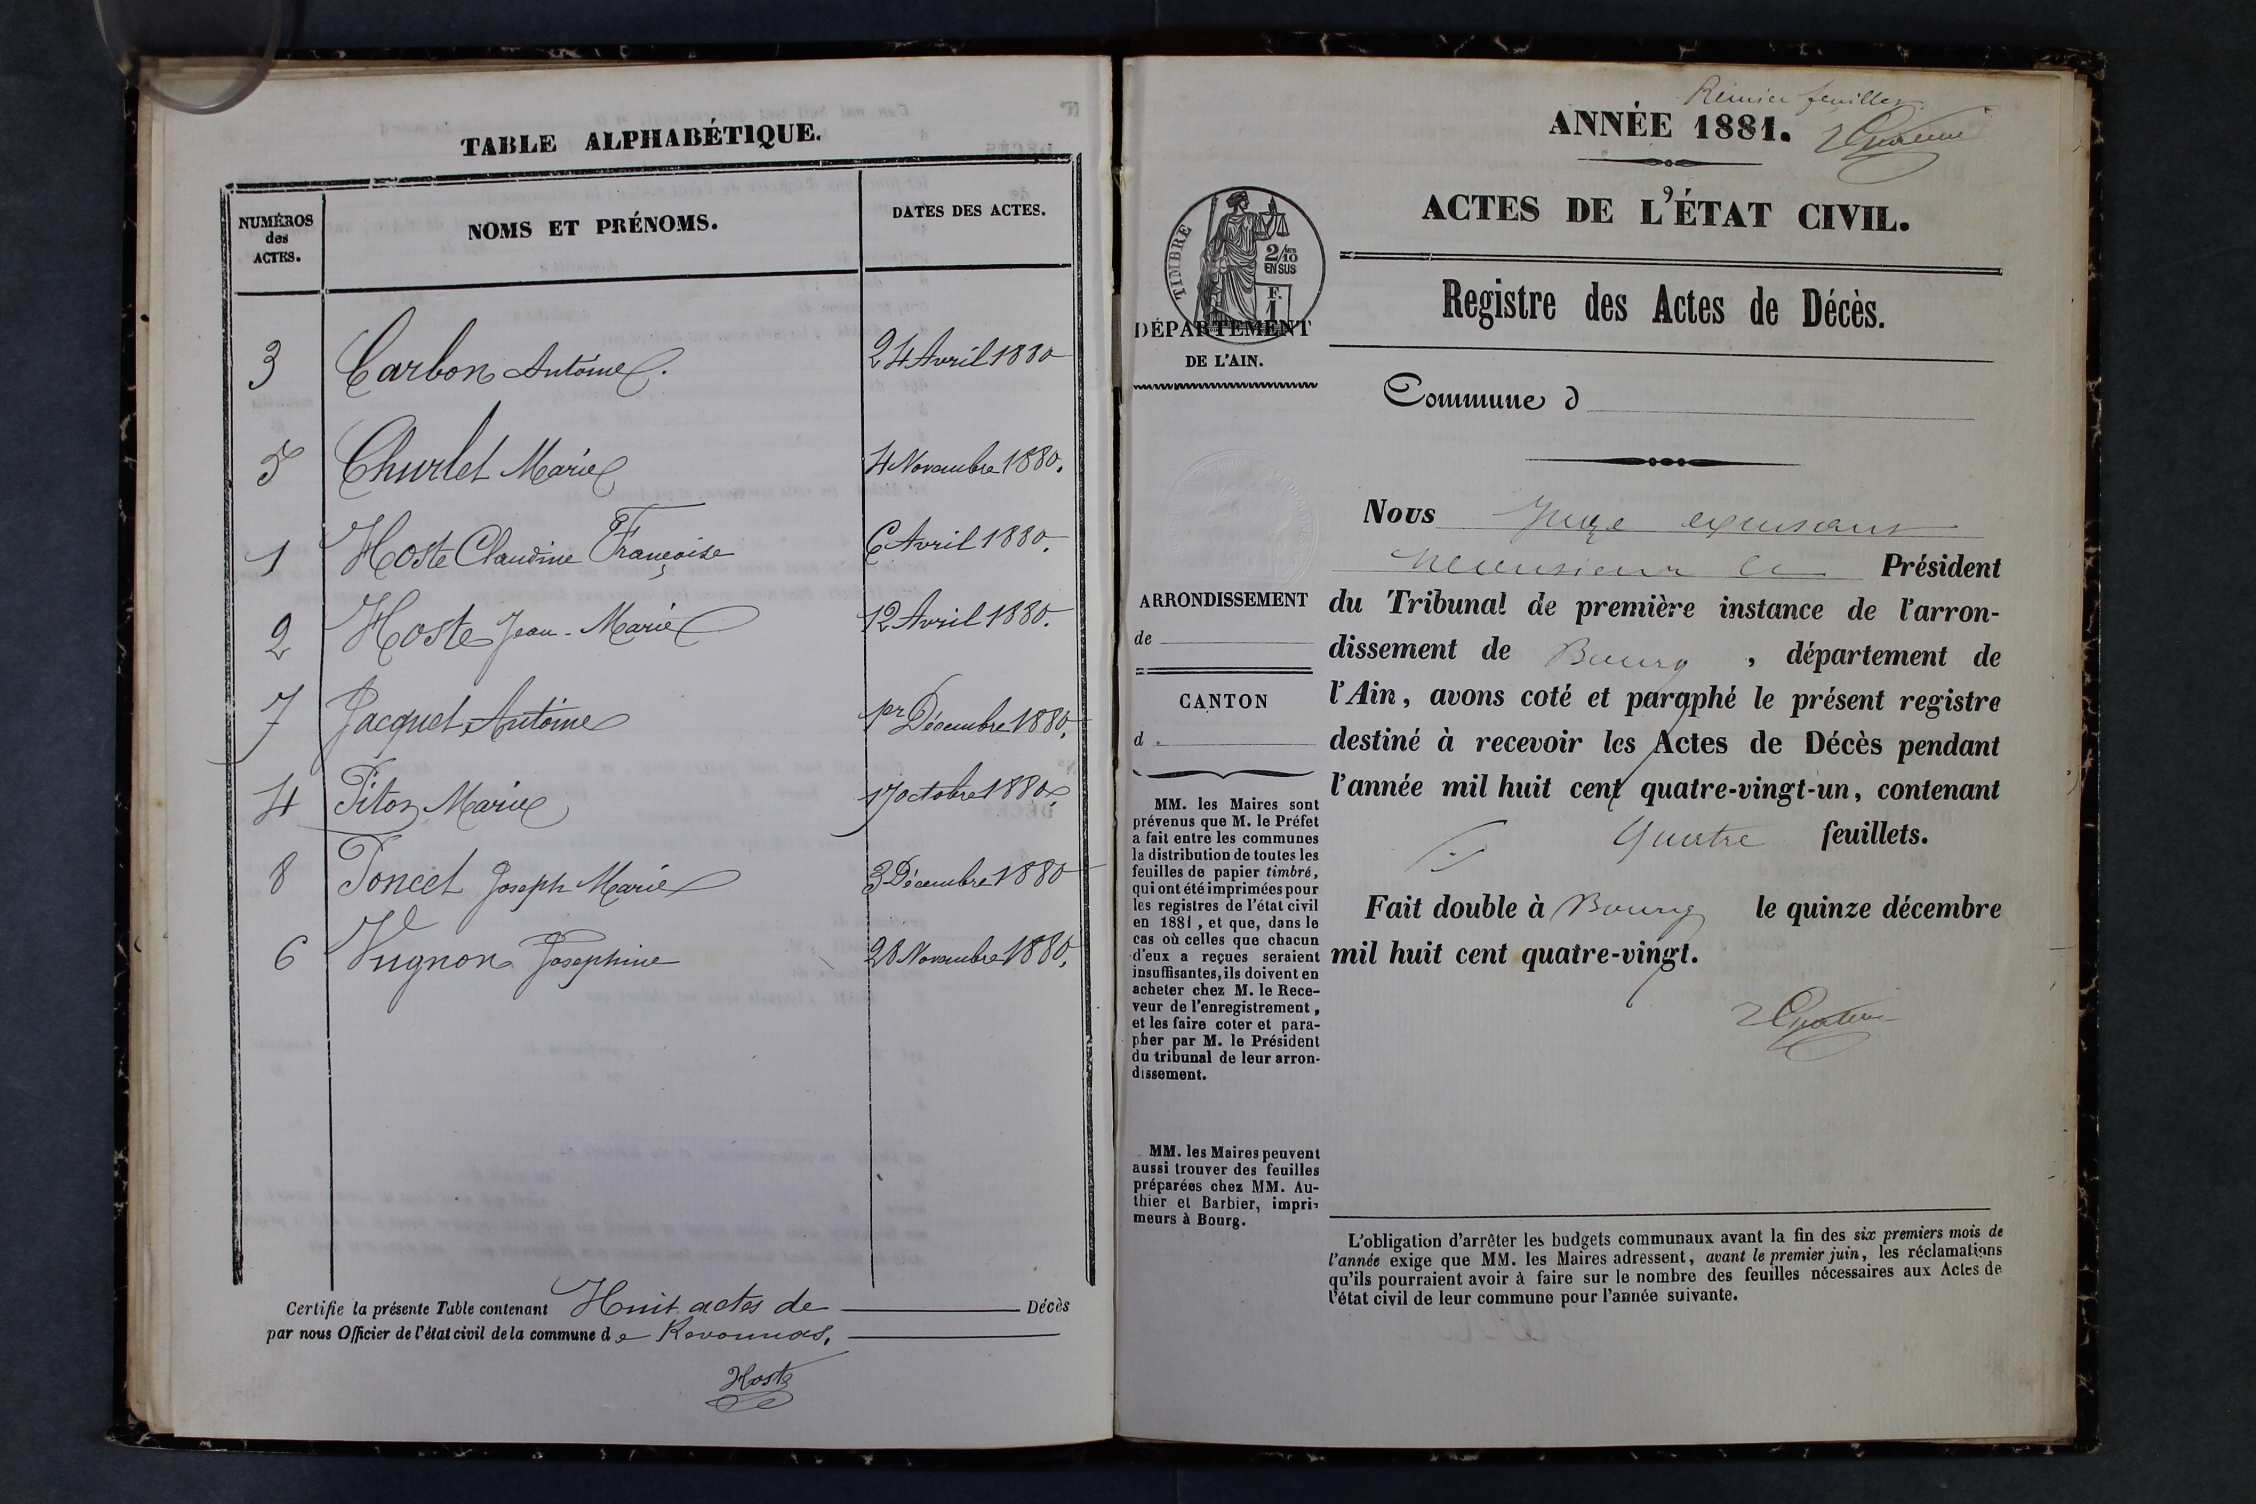 TABLE ALPHABÉTIQUE.
NUMÉROS des ACTES.
NOMS ET PRÉNOMS.
DATES DES ACTES.
3 Carbon Antoine. 24 Avril 1880
5 Churlet Marie 4 Novembre 1880.
1 Hoste Claudine Françoise 6 Avril 1880.
2 Hoste Jean-Marie 12 Avril 1880.
7 Jacquet Antoine 1er Décembre 1880.
4 Piton Marie 17 octobre 1880.
8 Poncet Joseph Marie 3 Décembre 1880
6 Vugnon Josephine 28 Novembre 1880.
Certifie la présente Table contenant Huit actes de Décès
par nous Officier de l'état civil de la commune de Revonnas.
Hoste
feuillet
ANNÉE 1881.
ACTES DE L'ÉTAT CIVIL.
TIMBRE
2/10 EN SUS
F. 1
DÉPARTEMENT
DE L'AIN.
Registre des Actes de Décès.
Commune d
Nous Juge
Monsieur le Président
ARRONDISSEMENT
de
CANTON
d
du Tribunal de première instance de l'arron-
dissement de Bourg, département de
l'Ain, avons coté et paraphé le présent registre
destiné à recevoir les Actes de Décès pendant
l'année mil huit cent quatre-vingt-un, contenant
Quatre feuillets.
Fait double à Bourg le quinze décembre
mil huit cent quatre-vingt.
MM. les Maires sont
prévenus que M. le Préfet
a fait entre les communes
la distribution de toutes les
feuilles de papier timbré,
qui ont été imprimées pour
les registres de l'état civil
en 1881, et que, dans le
cas où celles que chacun
d'eux a reçues seraient
insuffisantes, ils doivent en
acheter chez M. le Rece-
veur de l'enregistrement,
et les faire coter et para-
pher par M. le Président
du tribunal de leur arron-
dissement.
MM. les Maires peuvent
aussi trouver des feuilles
préparées chez MM. Au-
thier et Barbier, impri-
meurs à Bourg.
L'obligation d'arrêter les budgets communaux avant la fin des six premiers mois de
l'année exige que MM. les Maires adressent, avant le premier juin, les réclamations
qu'ils pourraient avoir à faire sur le nombre des feuilles nécessaires aux Actes de
l'état civil de leur commune pour l'année suivante.